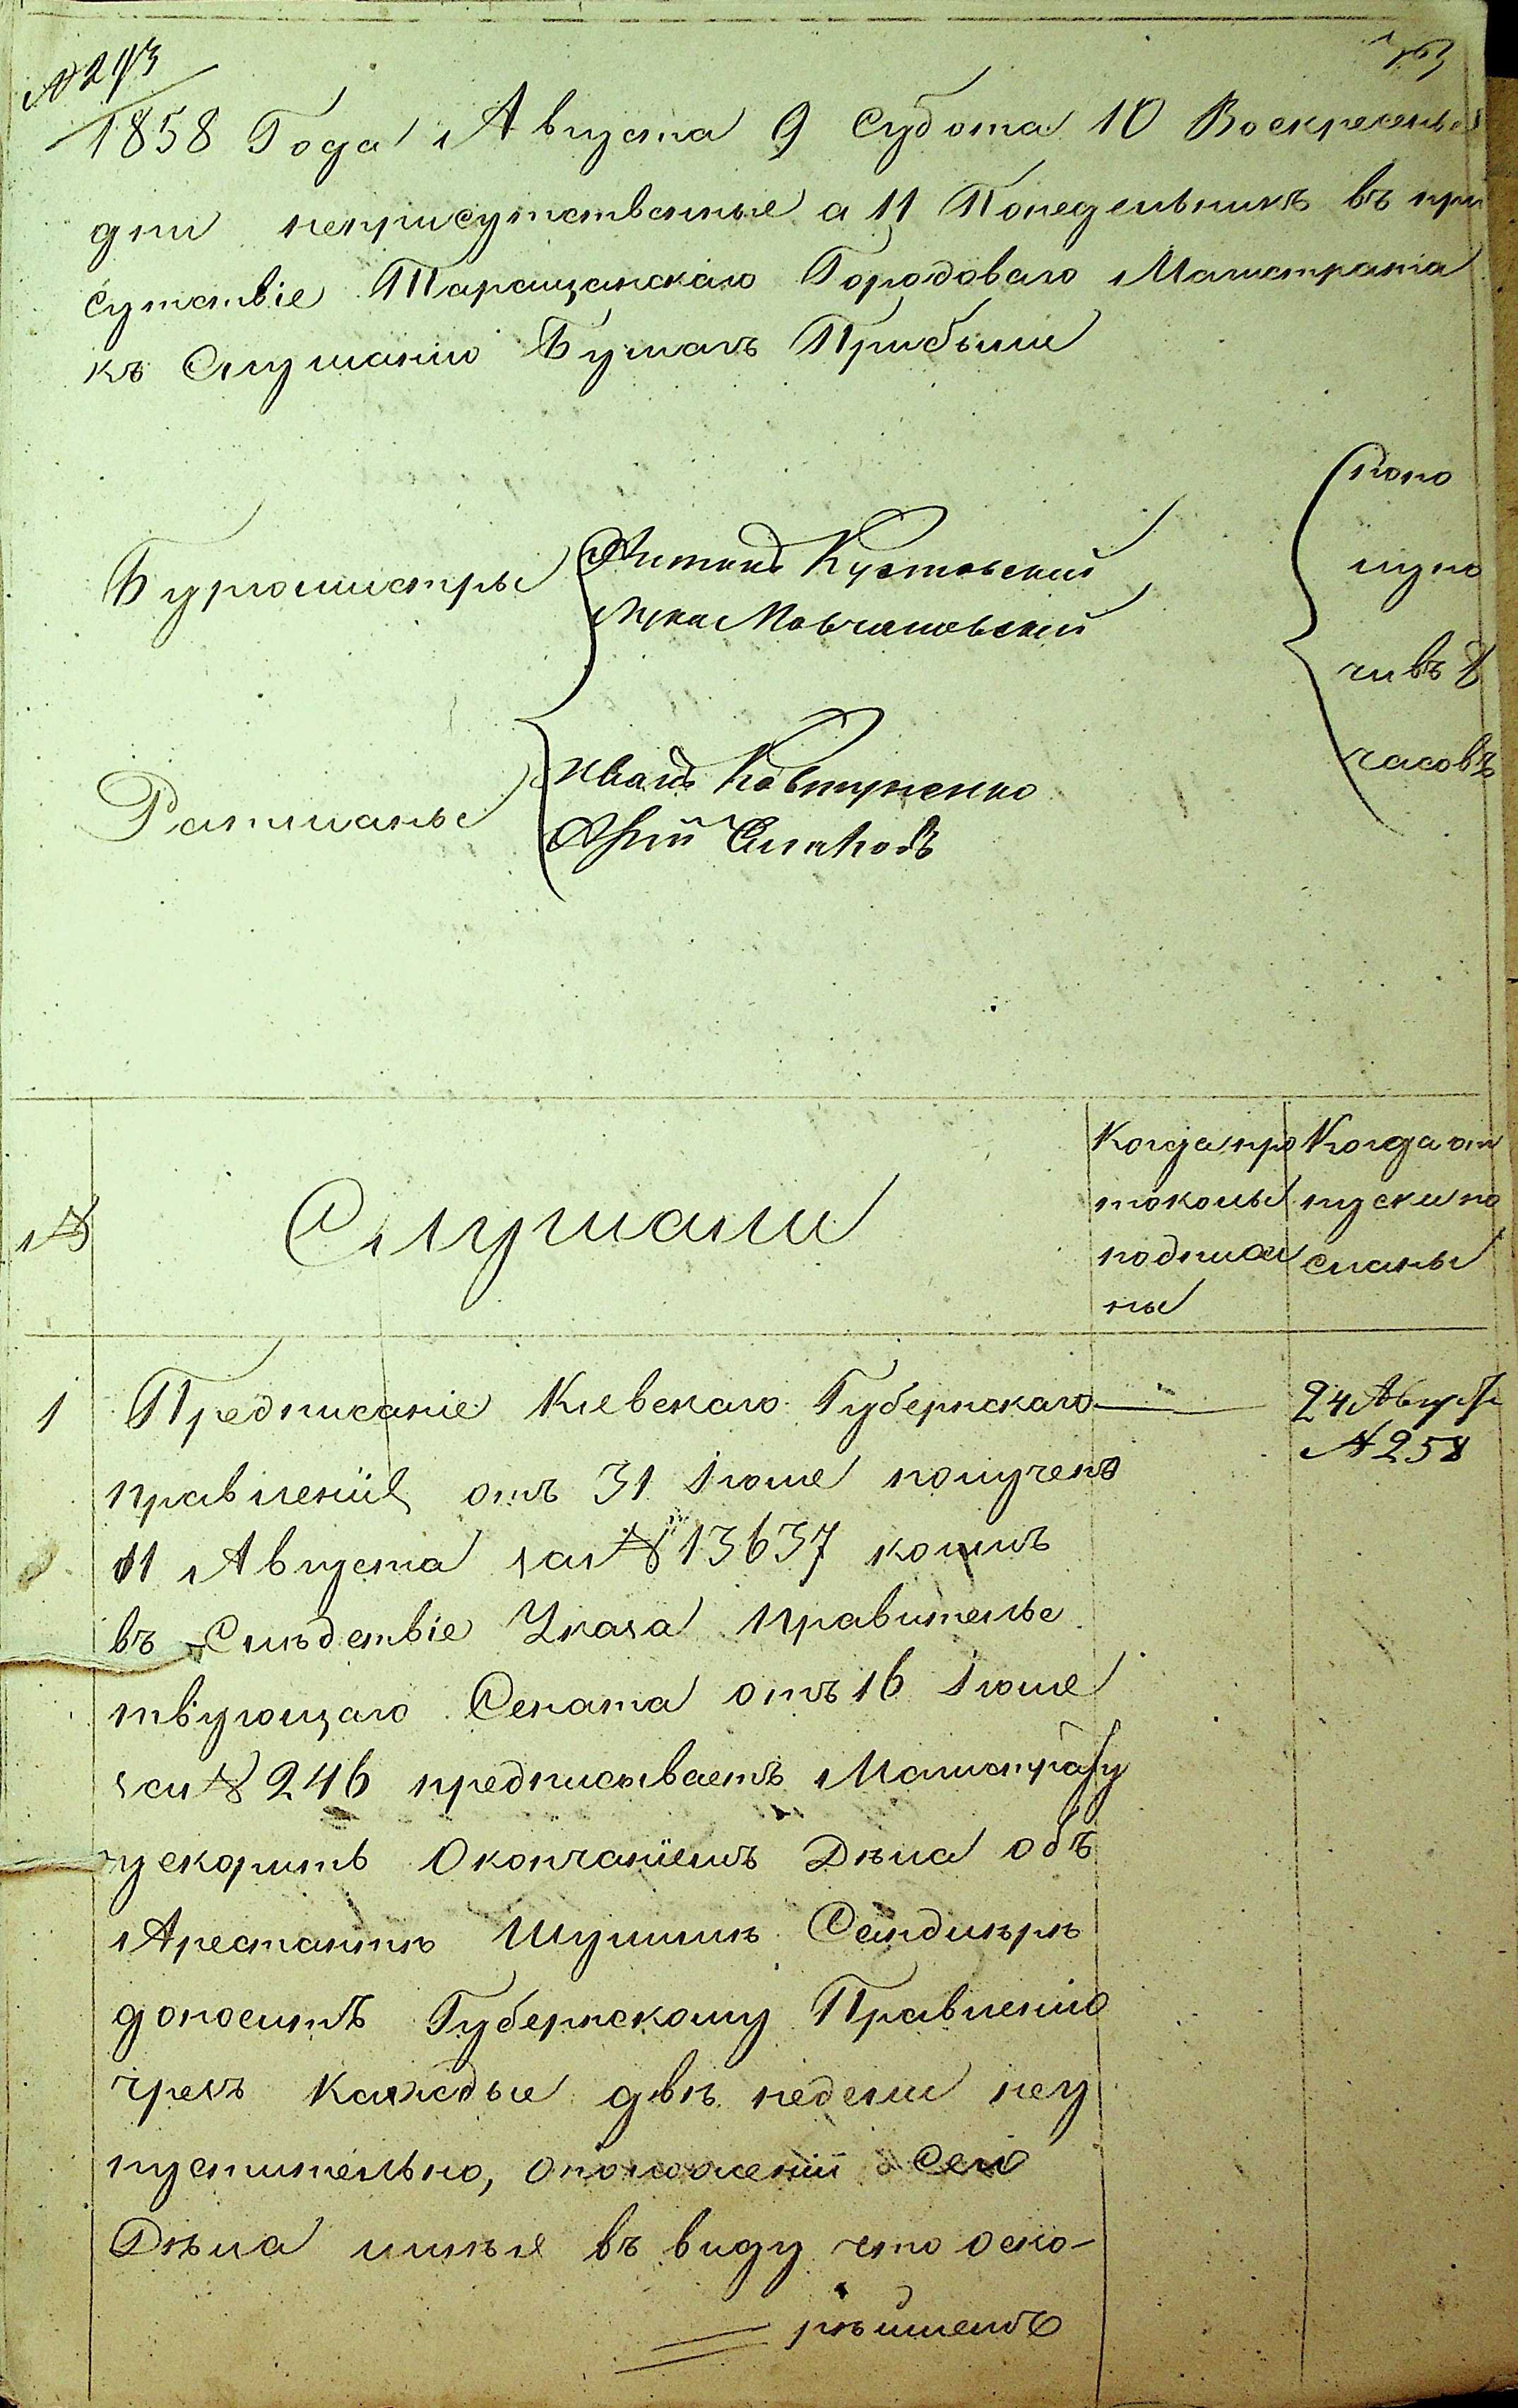 № 243
1858 Года Августа 9 Субота 10 Воскресенье
дни неприсутственные а 11 Понедельникъ въ при
сутствіе Таращанскаго Городоваго Магистрата
къ Слушанію Бумагъ Прибыли
Бургомистры
Лука Мовчановский
Ратманы
Иванъ Ковтуненко
попо
лудно
чивъ 8
часовъ
№
Слушали
Когда про
токолы
подписа
ны
Когда от
пуски по
сланы
1
Предписаніе Кіевскаго Губернскаго
24 Авгус
№ 258
правленія отъ 31 Іюля получено
11 Августа за № 13637 коимъ
въ Следствіе Указа Правительс
твующаго Сената отъ 16 Іюля
за № 246 предписываетъ Магистрату
ускорить Окончаніемъ Дѣла объ
Арестантѣ Шулимѣ Сендлѣрѣ
доноситъ Губернскому Правленію
чрезъ каждые двѣ недели неу
пустительно, о положеніи Сего
Дѣла имѣя въ виду что оско-
рѣйшемъ